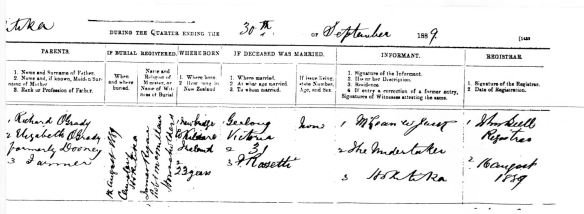 itika
DURING THE QUARTER ENDING THE 30th OF September 1889.
PARENTS.
1. Name and Surname of Father.
2. Name and, if known, Maiden Surname of Mother.
3. Rank or Profession of Father.
IF BURIAL REGISTERED.
When and where buried.
Name and Religion of Minister, or Name of Witness of Burial
WHERE BORN
1. Where born.
2. How long in New Zealand
IF DECEASED WAS MARRIED.
1. Where married.
2. At what age married
3. To whom married.
If issue living, state Number, Age, and Sex.
INFORMANT.
1. Signature of the Informant.
2. His or her Description.
3. Residence.
4. If entry a correction of a former entry, Signatures of Witnesses attesting the same.
REGISTRAR.
1. Signature of the Registrar.
2. Date of Registration.
1 Richard O'Grady
2 Elizabeth O'Grady
formerly Dooney
3 Farmer
14 August 1889
Cemetery
Hokitika
1 Newbridge
Kildare
Ireland
2
23 years
1 Geelong
Victoria
2 31
3 F. Rosetti
None
1
2 The Undertaker
3 Hokitika
1
Registrar
2 16 August
1889